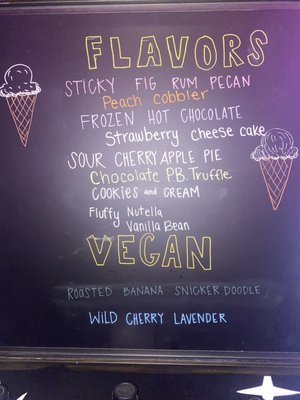 FLAVORS
STICKY FIG RUM PECAN
Peach cobbler
FROZEN HOT CHOCOLATE
Strawberry cheese cake
SOUR CHERRY APPLE PIE
Chocolate PB Truffle
COOKIES and CREAM
Fluffy Nutella
Vanilla Bean
VEGAN
ROASTED BANANA SNICKER DOODLE
WILD CHERRY LAVENDER